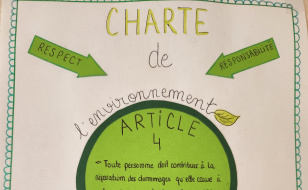 CHARTE
RESPECT
RESPONSABILITÉ
de
l'environnement
ARTICLE
4
« Toute personne doit contribuer à la
réparation des dommages qu'elle cause à